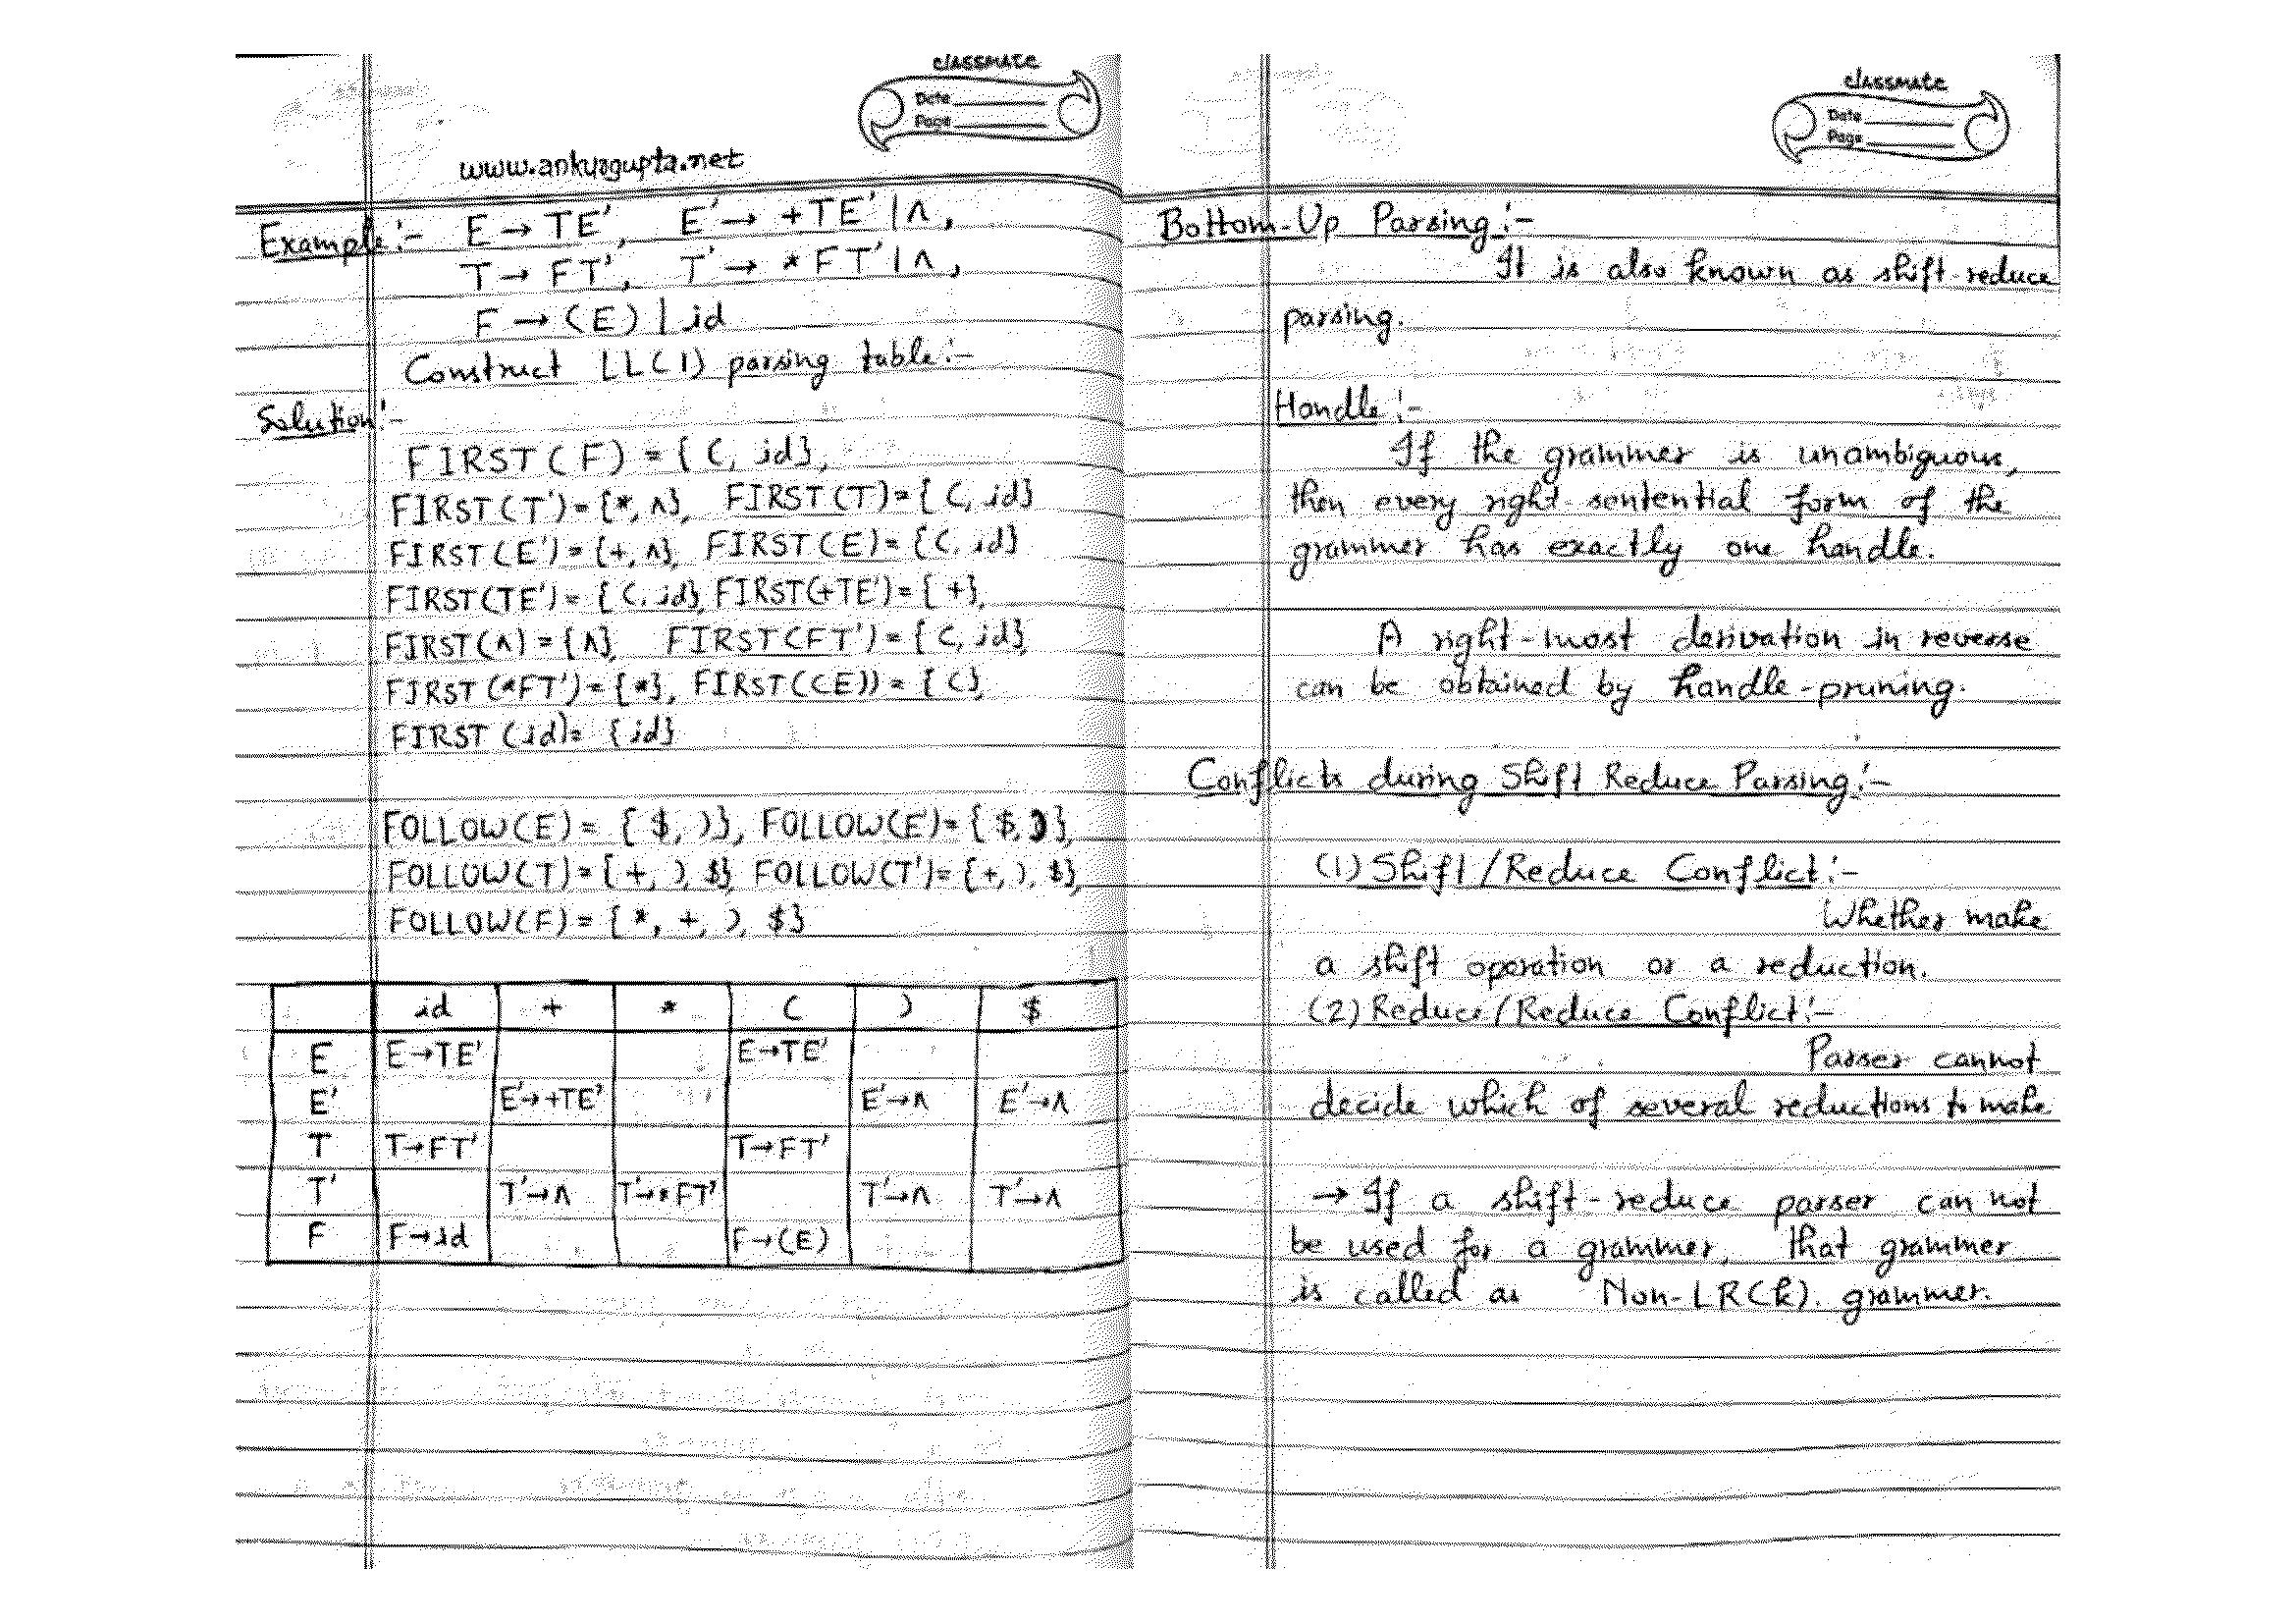 classmate
Date
Page
www.ankurgupta.net
Example:- E → TE', E' → +TE' | ∧,
T → FT', T' → *FT' | ∧,
F → (E) | id
Construct LL(1) parsing table:-
Solution:-
FIRST(F) = {(, id},
FIRST(T') = {*, ∧}, FIRST(T) = {(, id}
FIRST(E') = {+, ∧}, FIRST(E) = {(, id}
FIRST(TE') = {(, id}, FIRST(+TE') = {+},
FIRST(∧) = {∧}, FIRST(FT') = {(, id},
FIRST(*FT') = {*}, FIRST((E)) = {(},
FIRST(id) = {id}
FOLLOW(E) = {$, )}, FOLLOW(E') = {$, )},
FOLLOW(T) = {+, ), $}, FOLLOW(T') = {+, ), $},
FOLLOW(F) = {*, +, ), $}
id + * ( ) $
E E→TE' E→TE'
E' E'→+TE' E'→∧ E'→∧
T T→FT' T→FT'
T' T'→∧ T'→*FT' T'→∧ T'→∧
F F→id F→(E)
classmate
Date
Page
Bottom-Up Parsing:-
It is also known as shift reduce
parsing.
Handle:-
If the grammer is unambiguous,
then every right sentential form of the
grammer has exactly one handle.
A right-most derivation in reverse
can be obtained by handle-pruning.
Conflicts during Shift Reduce Parsing:-
(1) Shift/Reduce Conflict:-
Whether make
a shift operation or a reduction.
(2) Reduce/Reduce Conflict:-
Parser cannot
decide which of several reductions to make
→ If a shift-reduce parser can not
be used for a grammer, that grammer
is called as Non-LR(k). grammer.